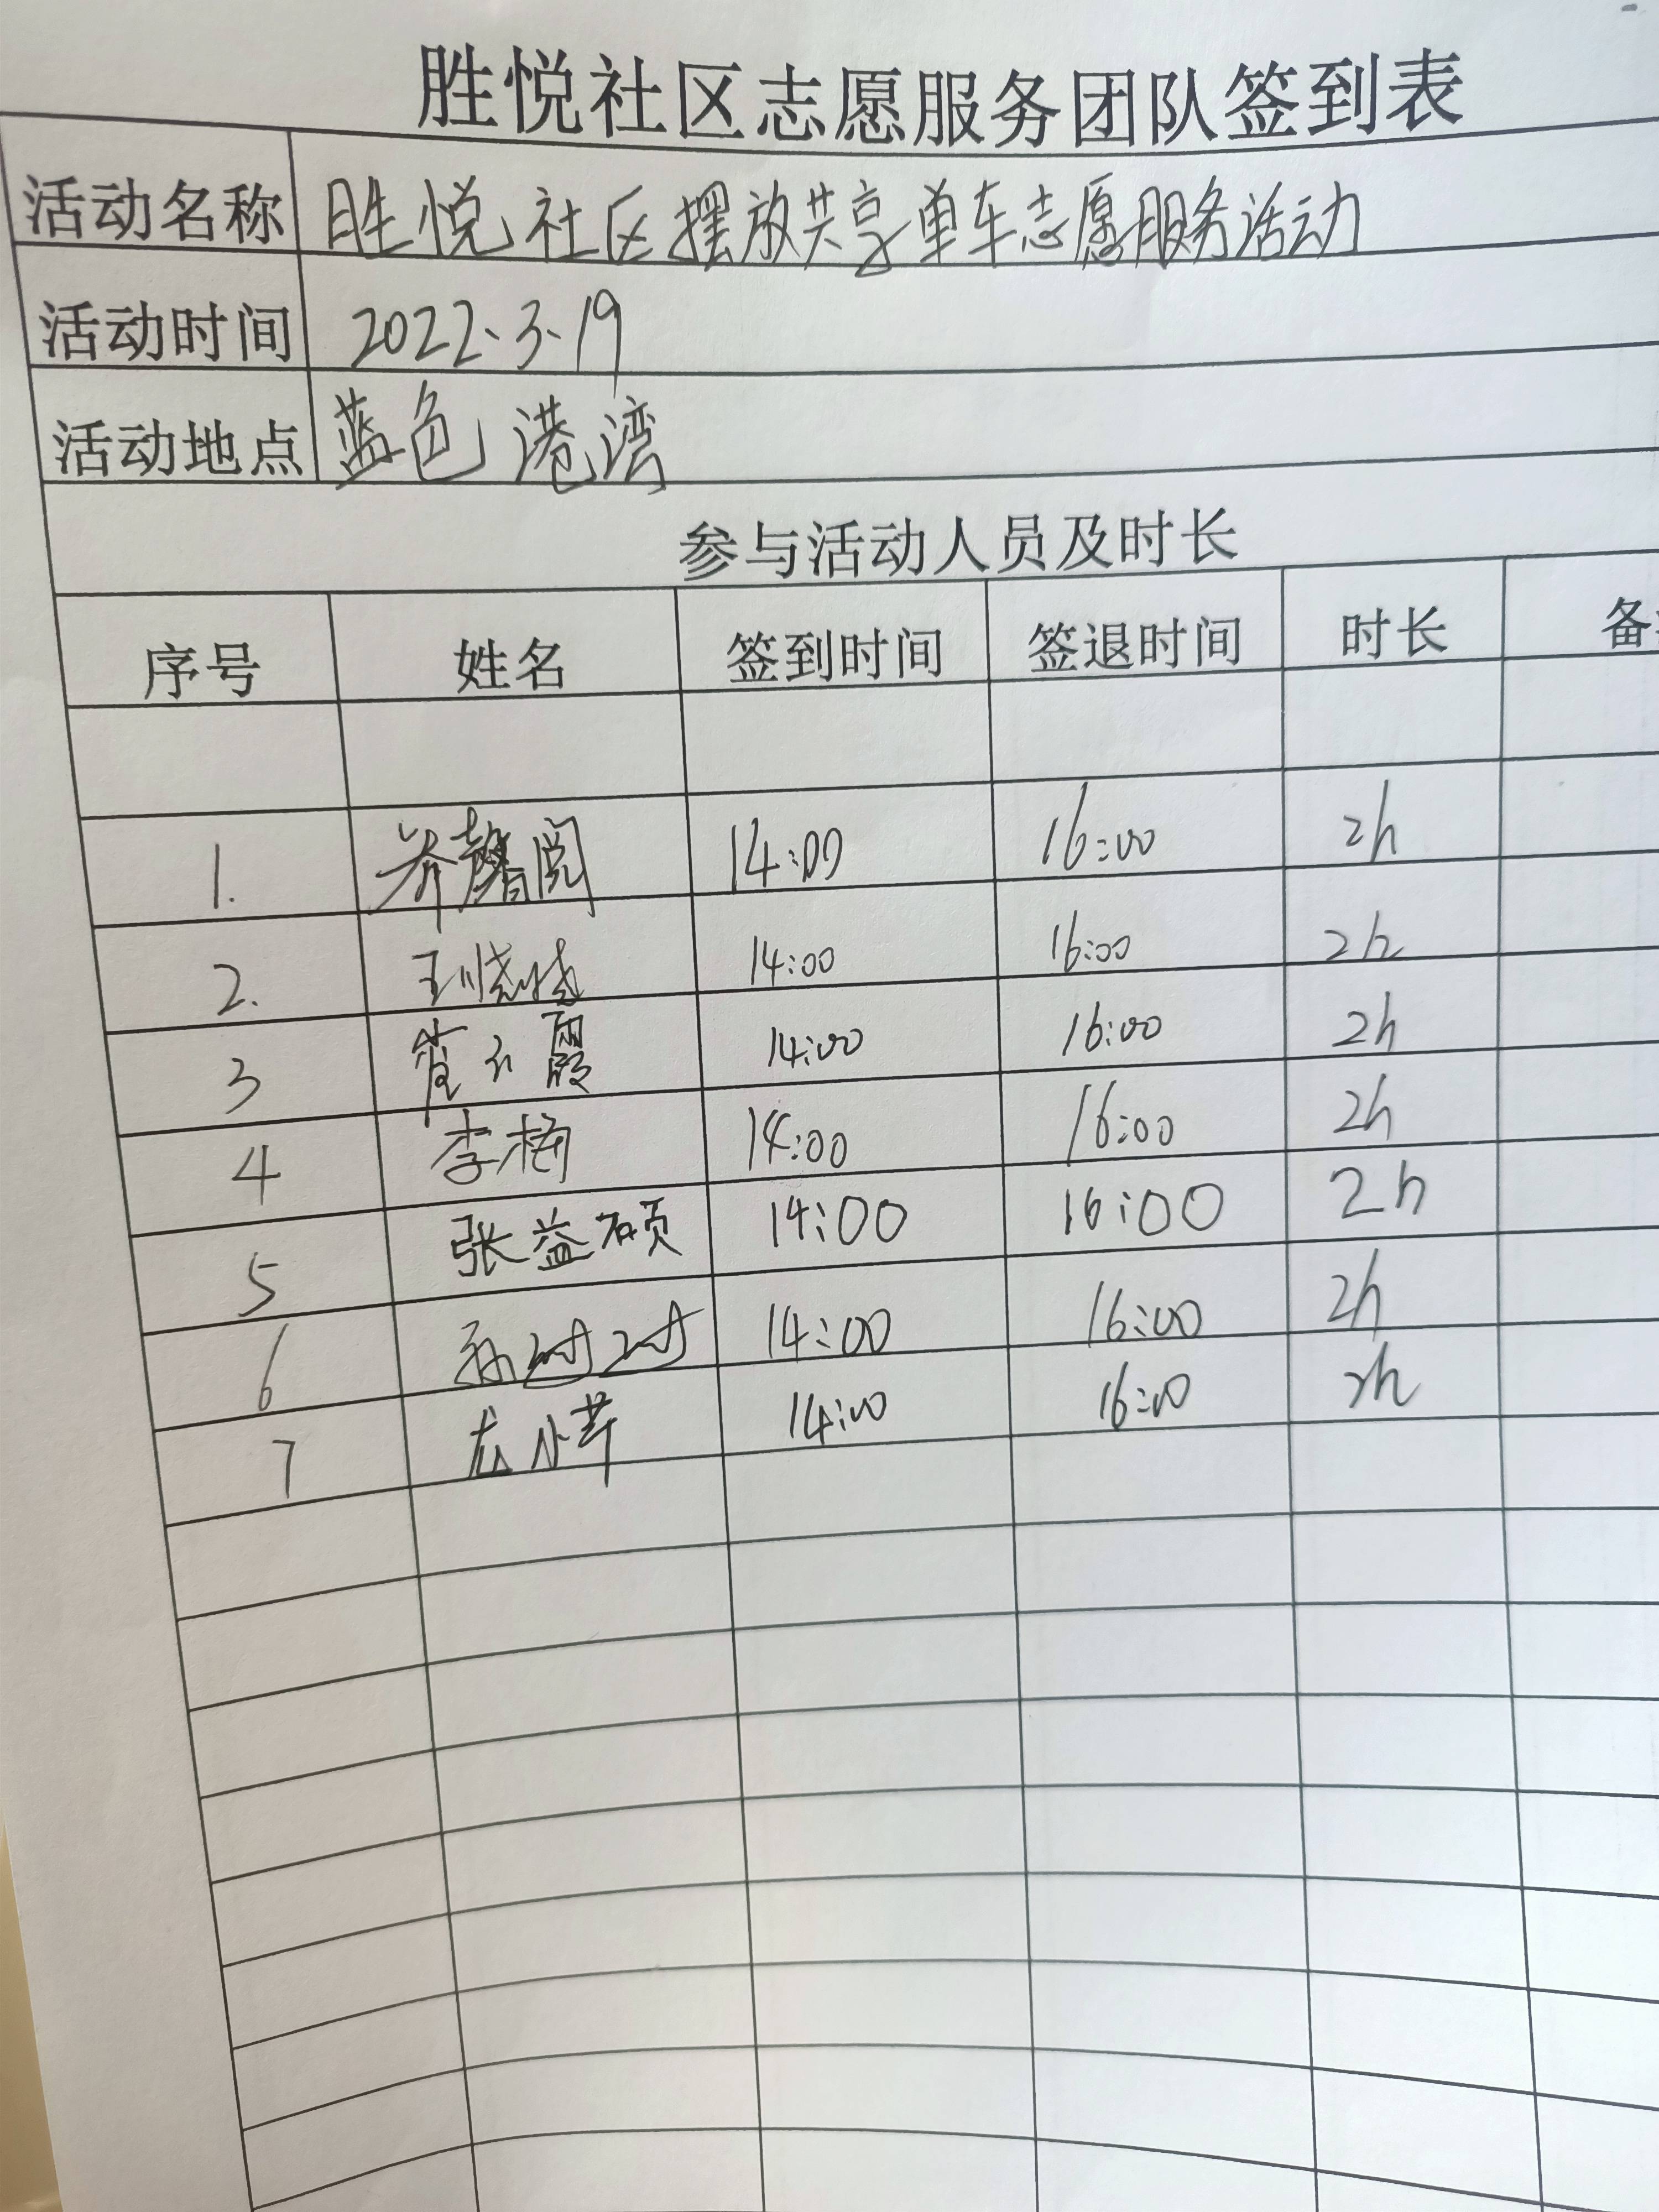 胜悦社区志愿服务团队签到表
活动名称 胜悦社区摆放共享单车志愿服务活动
活动时间 2022.3.19
活动地点 蓝色港湾
参与活动人员及时长
序号 姓名 签到时间 签退时间 时长 备
1. 乔馨阅 14:00 16:00 2h
2. 王晓倩 14:00 16:00 2h
3 崔云霞 14:00 16:00 2h
4 李梅 14:00 16:00 2h
5 张益硕 14:00 16:00 2h
6 孙 14:00 16:00 2h
7 小苹 14:00 16:00 2h